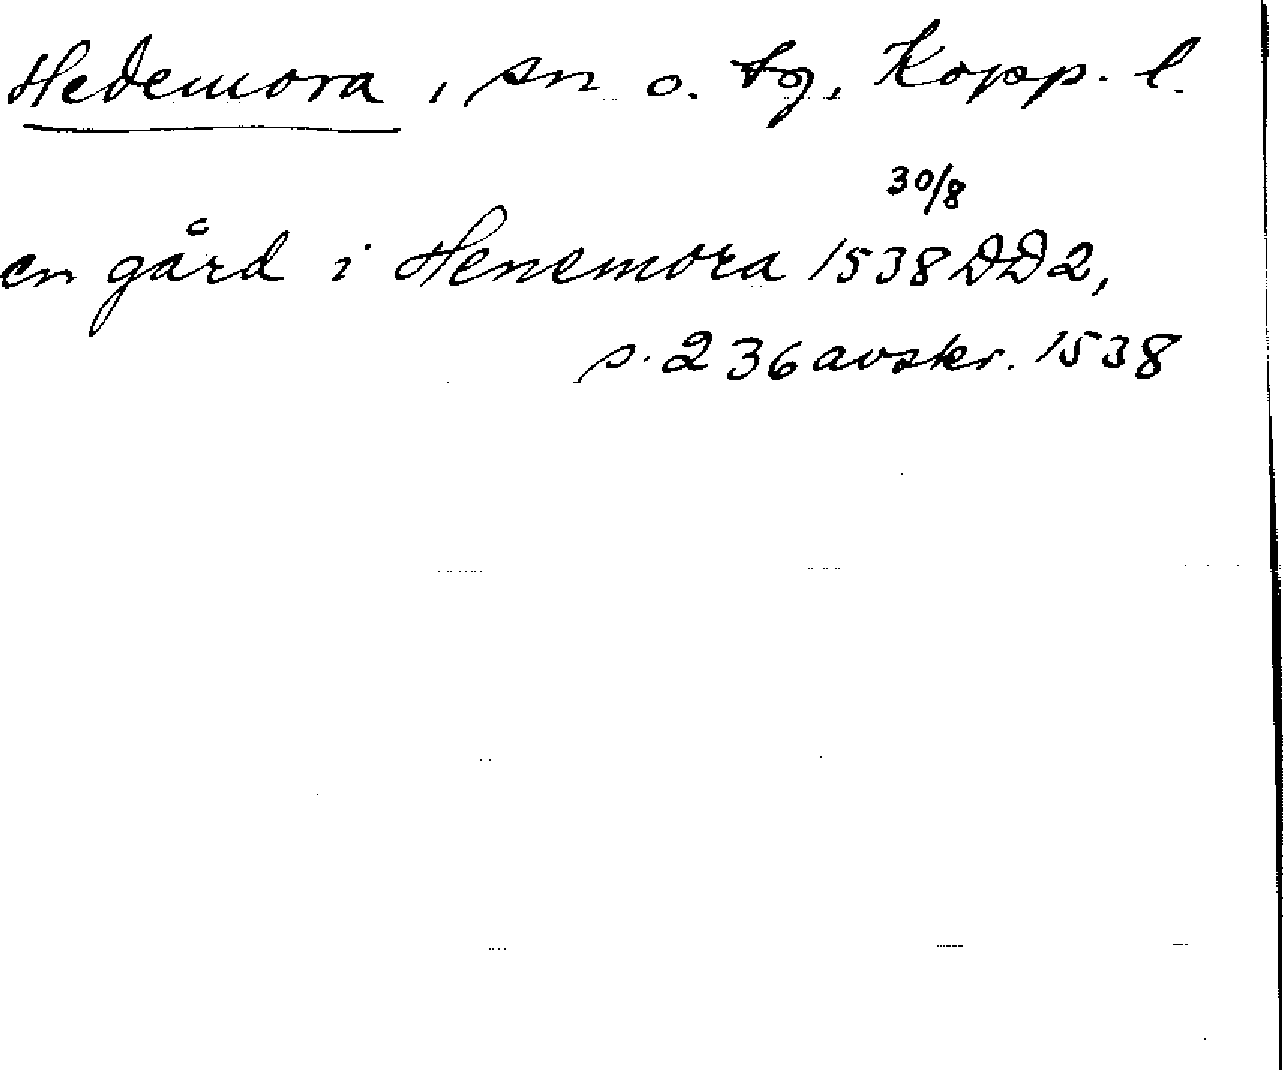 Hedemora, sn o. tg, Kopp. l.
30/8
en gård i Henemora 1538 DD2,
s. 236 avskr. 1538